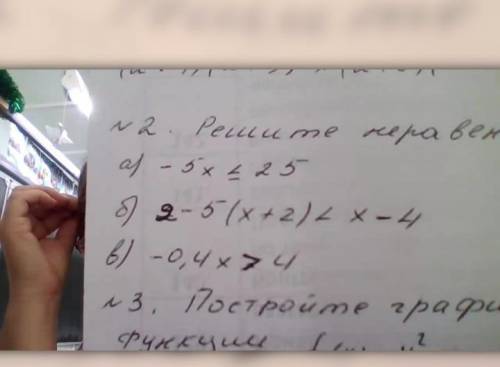 №2. Решите неравен
а) -5x ≤ 25
б) 2-5(x+2) < x-4
в) -0,4x > 4
№3. Постройте графи
функции